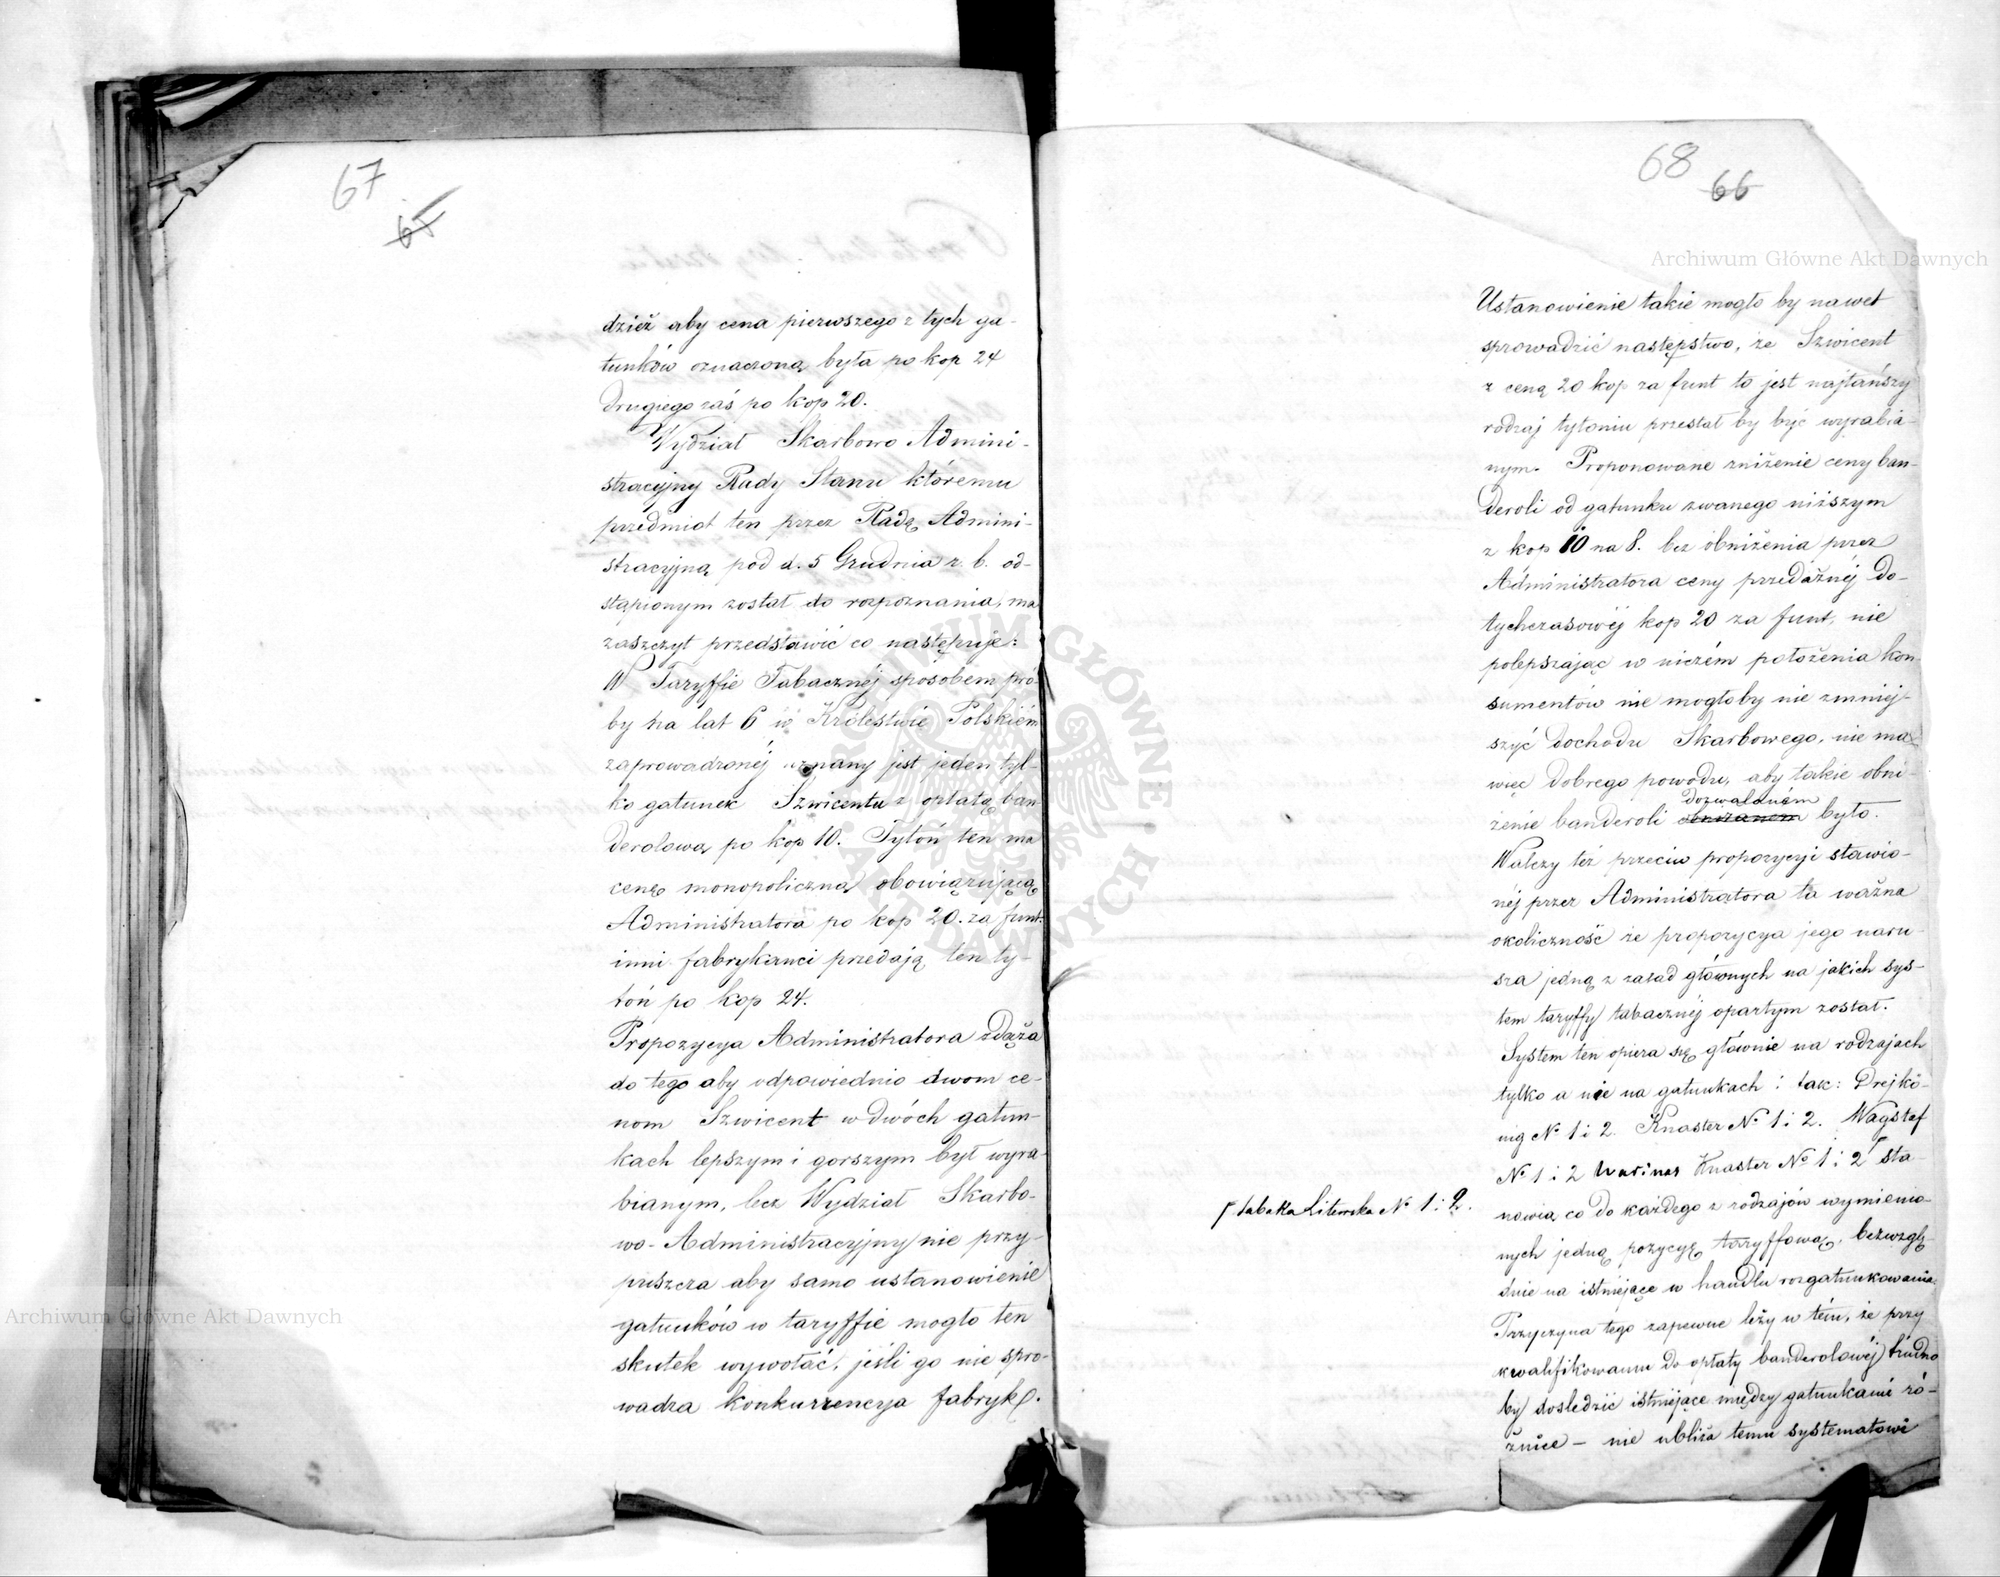 67
65
dzież aby cena pierwszego z tych ga-
tunków oznaczoną była po kop 24
drugiego zaś po kop 20.
Wydział Skarbowo Admini-
stracyjny Rady Stanu któremu
przedmiot ten przez Radę Admini-
stracyjną pod d. 5 Grudnia r. b. od-
stąpionym został do rozpoznania, ma
zaszczyt przedstawić co następuje:
W Taryffie Tabacznéj sposobem pró-
by na lat 6 w Królestwie Polskiém
zaprowadzonéj uznany jest jeden tyl-
ko gatunek Szwicentu z opłatą ban
derolową po kop 10. Tytoń ten ma
cenę monopoliczną obowiązującą
Administratora po kop 20. za funt.
inni fabrykanci przedają ten ty-
toń po kop 24.
Propozycya Administratora zdąża
do tego aby odpowiednio dwom ce-
nom Szwicent w dwóch gatun-
kach lepszym i gorszym był wyra-
bianym, lecz Wydział Skarbo-
wo-Administracyjny nie przy-
puszcza aby samo ustanowienie
gatunków w taryffie mogło ten
skutek wywołać, jeśli go nie spro-
wadza konkurrencya fabryk.
68
66
Archiwum Główne Akt Dawnych
Ustanowienie takie mogło by nawet
sprowadzić następstwo, że Szwicent
z ceną 20 kop za funt to jest najtańszy
rodzaj tytoniu przestał by być wyrabia-
nym. Proponowane zniżenie ceny ban-
deroli od gatunku zwanego niższym
z kop 10 na 8. bez obniżenia przez
Administratora ceny przedażnéj do-
tychczasowéj kop 20 za funt, nie
polepszając w niczém położenia kon-
sumentów nie mogłoby nie zmniej-
szyć dochodu Skarbowego, nie ma
więc dobrego powodu, aby takie obni-
dozwalaném
żenie banderoli było.
Walczy téż przeciw propozycyi stawio-
néj przez Administratora ta ważna
okoliczność że propozycya jego naru-
sza jedną z zasad głównych na jakich sys-
tem taryffy tabacznéj opartym został.
System ten opiera się głównie na rodzajach
tylko a nie na gatunkach i tak: Drejkö-
nig No 1 i 2. Knaster No 1 i 2. Wagstaf
No 1 i 2 Warinas Knaster No 1 i 2 sta-
tabaka Litewska No 1 i 2.
nowią co do każdego z rodzajów wymienio-
nych jedną pozycyę taryffową, bezwzglę-
dnie na istniejące w handlu rozgatunkowania.
Przyczyna tego zapewne leży w tém, że przy
kwalifikowaniu do opłaty banderolowéj trudno
by dośledzić istniejące między gatunkami ró-
żnice – nie ubliża temu systematowi
Archiwum Główne Akt Dawnych
ARCHIWUM GŁÓWNE AKT DAWNYCH